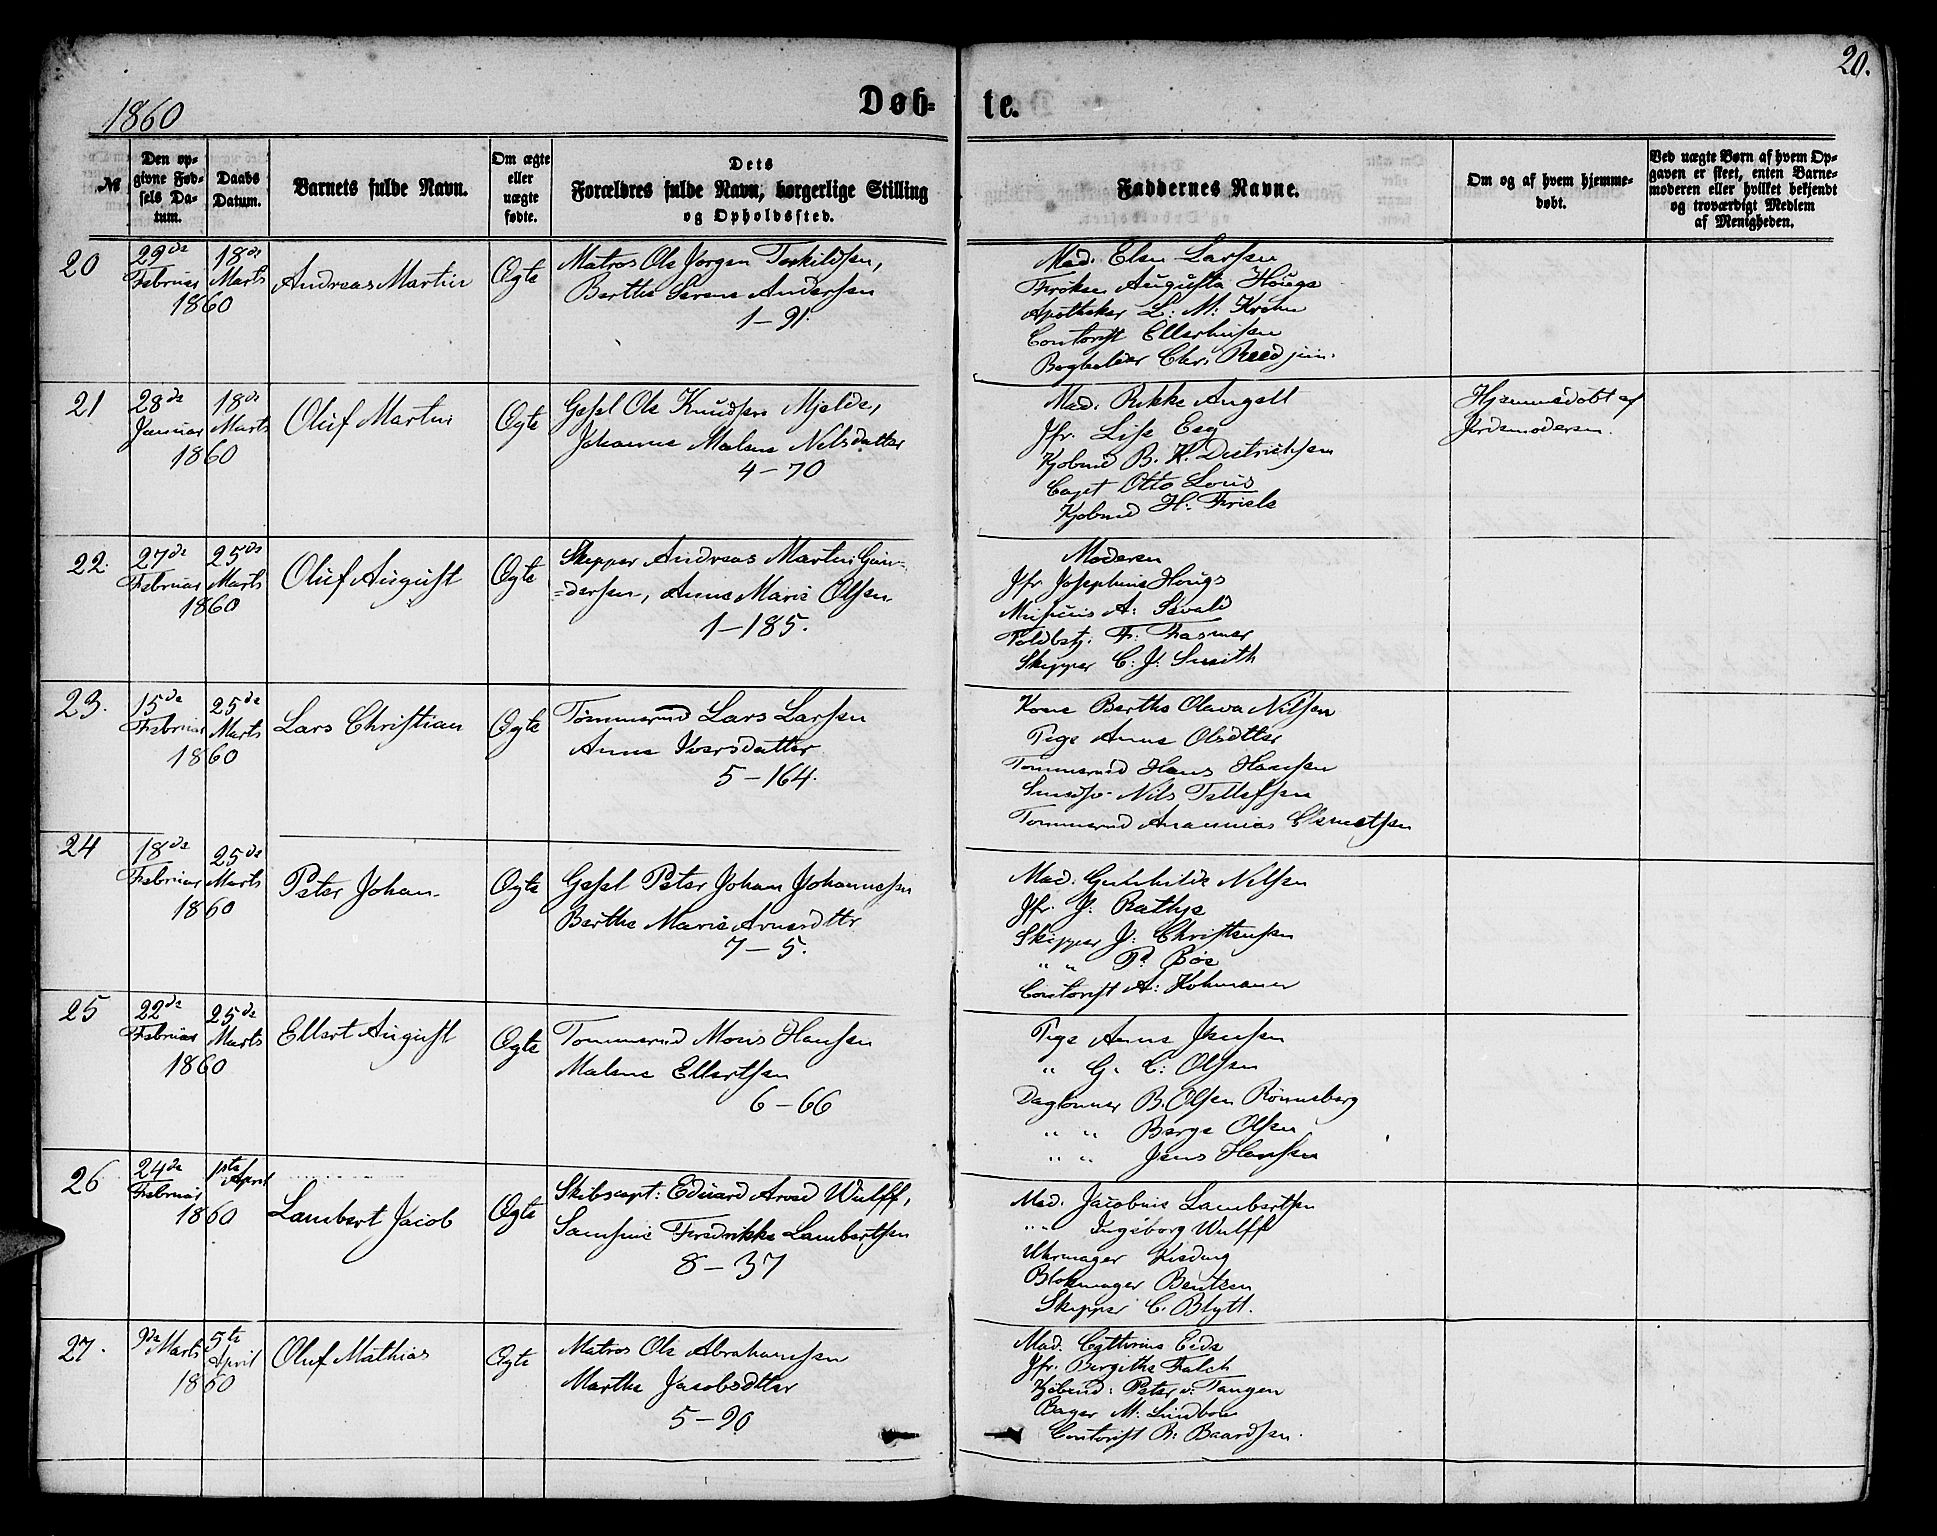 20.
1860
Døb- te.
№
Den op-
givne Fød-
sels Da-
tum.
Daabs
Datum.
Barnets fulde Navn.
Om ægte
eller
uægte
fødte.
Dets
Forældres fulde Navn, borgerlige Stilling
og Opholdssted.
Faddernes Navne.
Om og af hvem hjemme-
døbt.
Ved uægte Børn af hvem Op-
gaven er skeet, enten Barne-
moderen eller hvilket bekjendt
og troværdigt Medlem
af Menigheden.
20
29de
Februar
1860
18de
Marts
Andreas Martin
Ægte
Matros Ole Jørgen Terkildsen,
Berthe Serene Andersen
1-91.
Mad. Elen Larsen
Frøken Augusta Houge
Apotheker L. M. Krohn
Contorist Ellerhusen
Bogholder Chr. Reed jun.
21
28de
Januar
1860
18de
Marts
Oluf Martin
Ægte
Gesel Ole Knudsen Mjelde,
Johanne Malene Nilsdatter
4-70
Mad. Rikke Angell
Jfr. Lise Eeg
Kjøbmd B. K. Dietrichsen
Capt Otto Louis
Kjøbmd H. Friele
Hjemmedøbt af
Jordemoderen.
22.
27de
Februar
1860
25de
Marts
Oluf August
Ægte
Skipper Andreas Martin Gun-
=dersen, Anne Marie Olsen
1-185.
Moderen
Jfr Josephine Houge
Musicus A. Sevald
Toldbetj. F. Fasmer
Skipper C. J. Smith
23.
15de
Februar
1860
25de
Marts
Lars Christian
Ægte
Tømmermd Lars Larsen
Anne Iversdatter
5-164.
Kone Berthe Olava Nilsen
Pige Anne Olsdtter
Tømmermd Hans Hansen
Smedsv. Nils Tellefsen
Tømmermd Ananias Clemetsen
24
18de
Februar
1860
25de
Marts
Peter Johan
Ægte
Gesel Peter Johan Johannesen
Berthe Marie Arnesdttr
7-5.
Mad. Gunhilde Nilsen
Jfr. J. Rathje
Skipper J. Christensen
" " P. Bøe
Contorist A. Hohmann
25
22de
Februar
1860
25de
Marts
Ellert August
Ægte
Tømmermd Mons Hansen
Malene Ellertsen
6-66
Pige Anne Jensen
" G. C. Olsen
Daglønner B. Olsen Rønneberg
" " Børge Olsen
" " Jens Hansen
26
24de
Februar
1860
1ste
April
Lambert Jacob
Ægte
Skibscapt: Eduard Arved Wulff,
Samsine Fredrikke Lambertsen
8-37
Mad. Jacobine Lambertsen
" " Ingeborg Wulff
Uhrmager Kisding
Blokmager Bentzen
Skipper C. Blytt.
27.
9de Marts
1860
5te
April
Oluf Mathias
Ægte
Matros Ole Abrahamsen
Marthe Jacobsdtter
5-90
Mad. Cathrine Eide
Jfr. Birgithe Falch
Kjøbmd: Peter v. Tangen
Bager M. Lindboe
Contorist R. Baardsen.